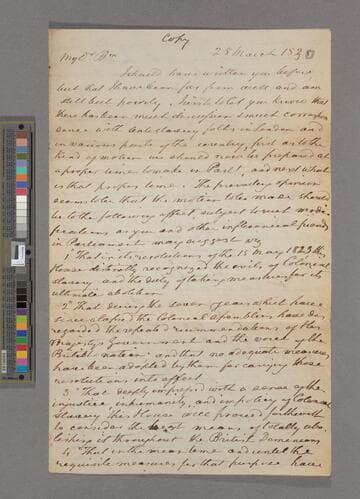 Copy
28 March 1830
My dr Bm
I should have written you before
but that I have been far from well and am
still but poorly. I think I told you I knew that
there has been much discussion & much correspon
dence with Anti slavery folks in London and
in various parts of the country, first as to the
kind of motion we should now be prepared at
a proper time to make in Parlt, and next what
is that proper time. The prevailing opinion
seems to be that the motion to be made should
be to the following effect subject to such modi
fications as you and other influential friends
in Parliament may suggest viz
1 That in its resolutions of the 15 May 1823 this
House distinctly recognized the evils of Colonial
slavery and the duty of taking measures for its
ultimate abolition
2d That during the seven years which have
since elapsed the Colonial Assemblies have dis
regarded the repeated recommendations of His
Majesty's Government and the voice of the
British nation and that no adequate measures
have been adopted by them for carrying those
resolutions into effect
3 That deeply impressed with a sense of the
injustice inhumanity and impolicy of Colonial
Slavery this House will proceed forthwith
to consider the best means of totally abo
lishing it throughout the British Dominions
4 That in the mean time and until the
requisite measures for that purpose have